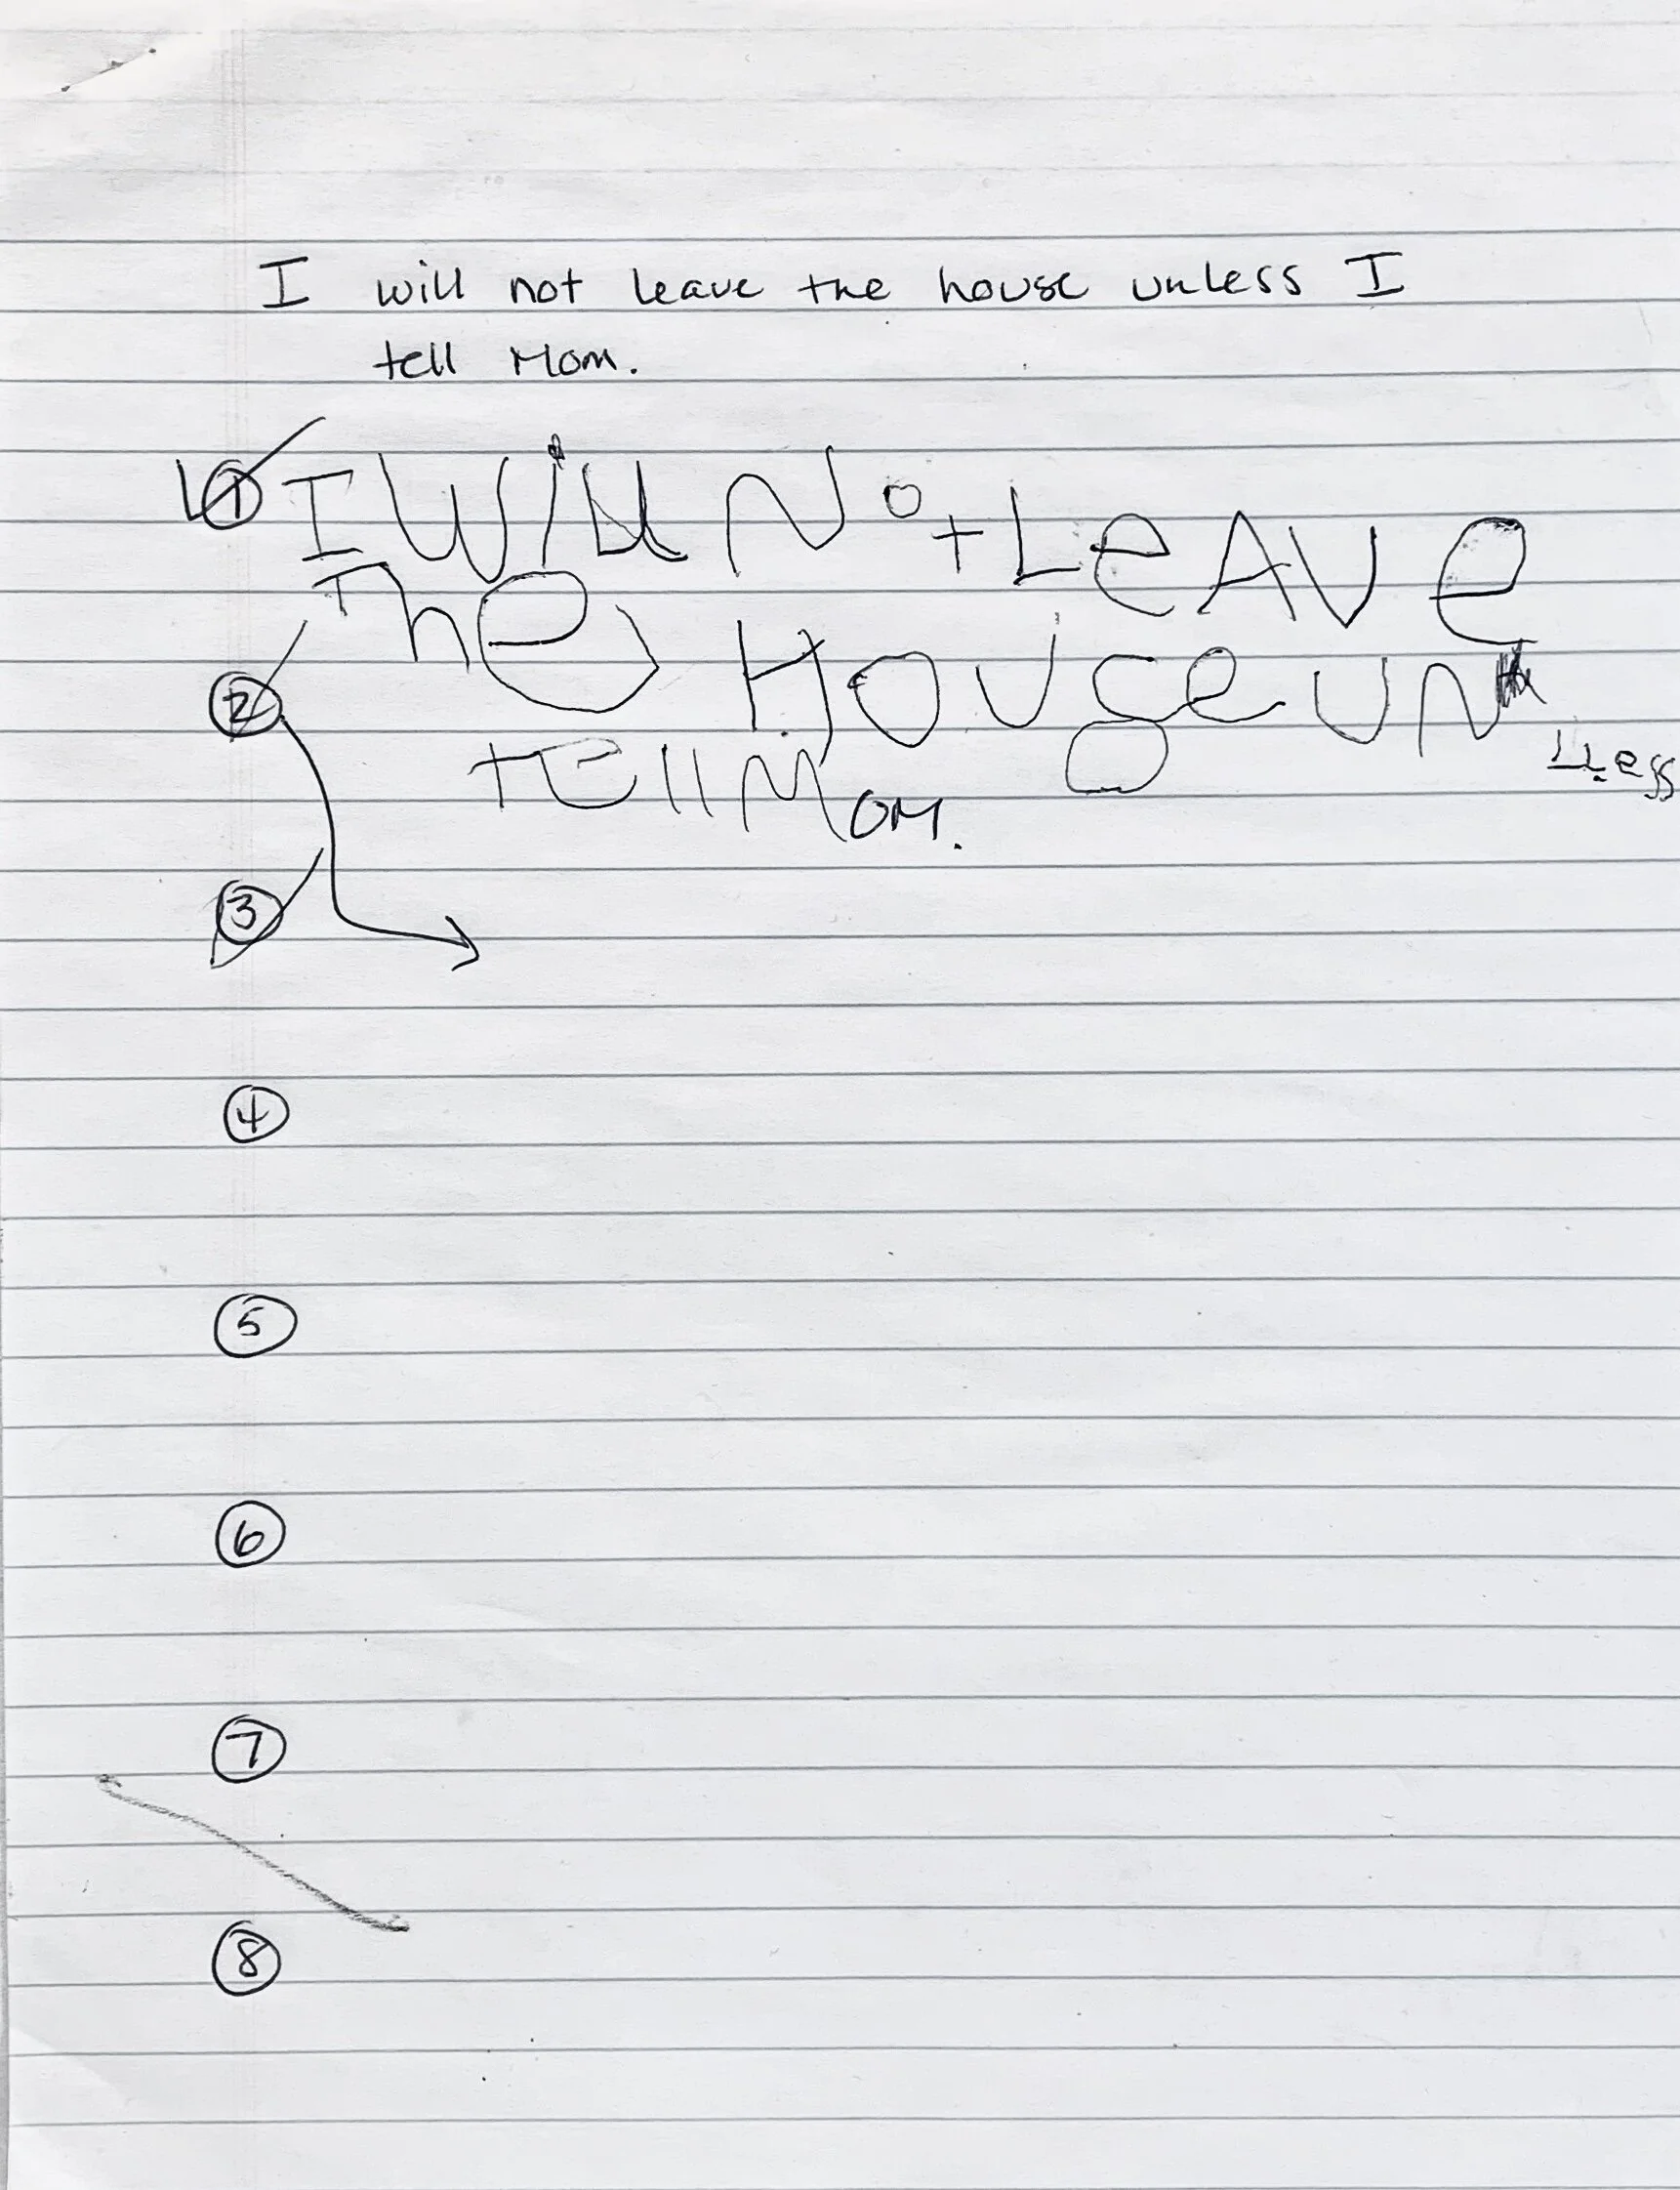 I will not leave the house unless I
tell Mom.
① I Will Not LeAVe
The
② House UN
Lless
tellMom.
③
④
⑤
⑥
⑦
⑧